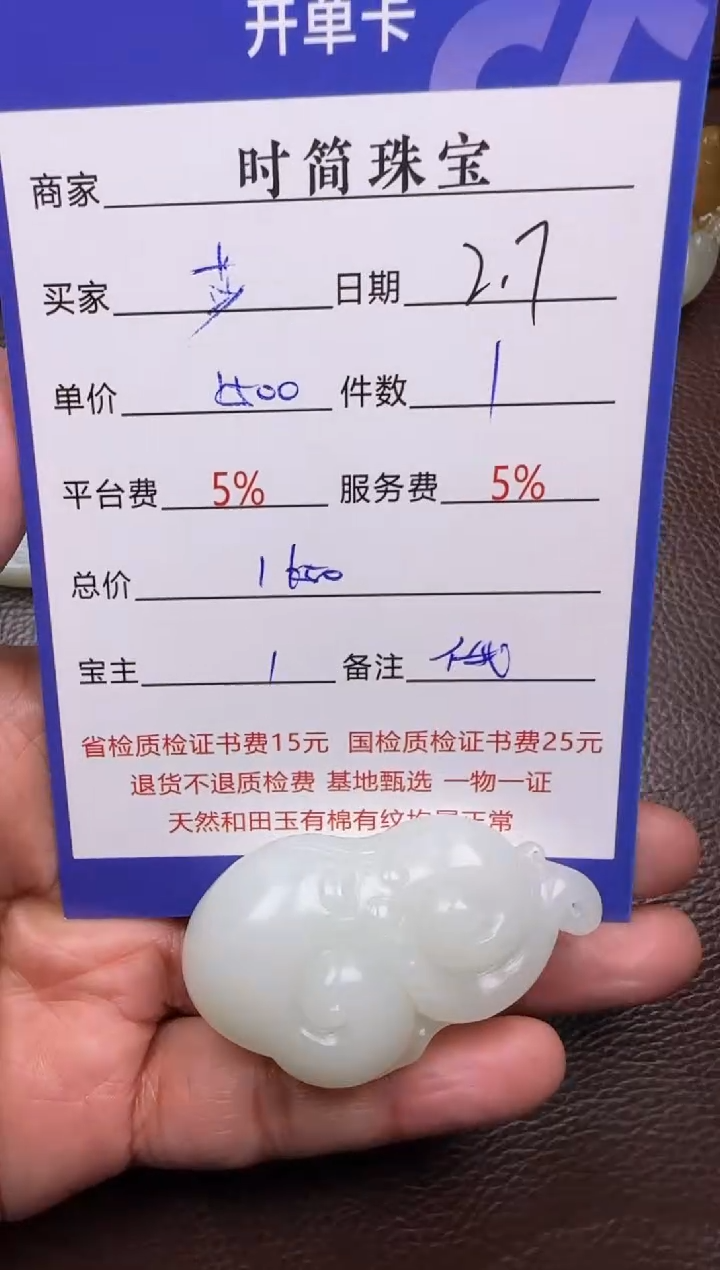 开单卡
商家 时简珠宝
买家 日期 2.7
单价 件数 1
平台费 5% 服务费 5%
总价
宝主 1 备注
省检质检证书费15元 国检质检证书费25元
退货不退质检费 基地甄选 一物一证
天然和田玉有棉有纹 正常